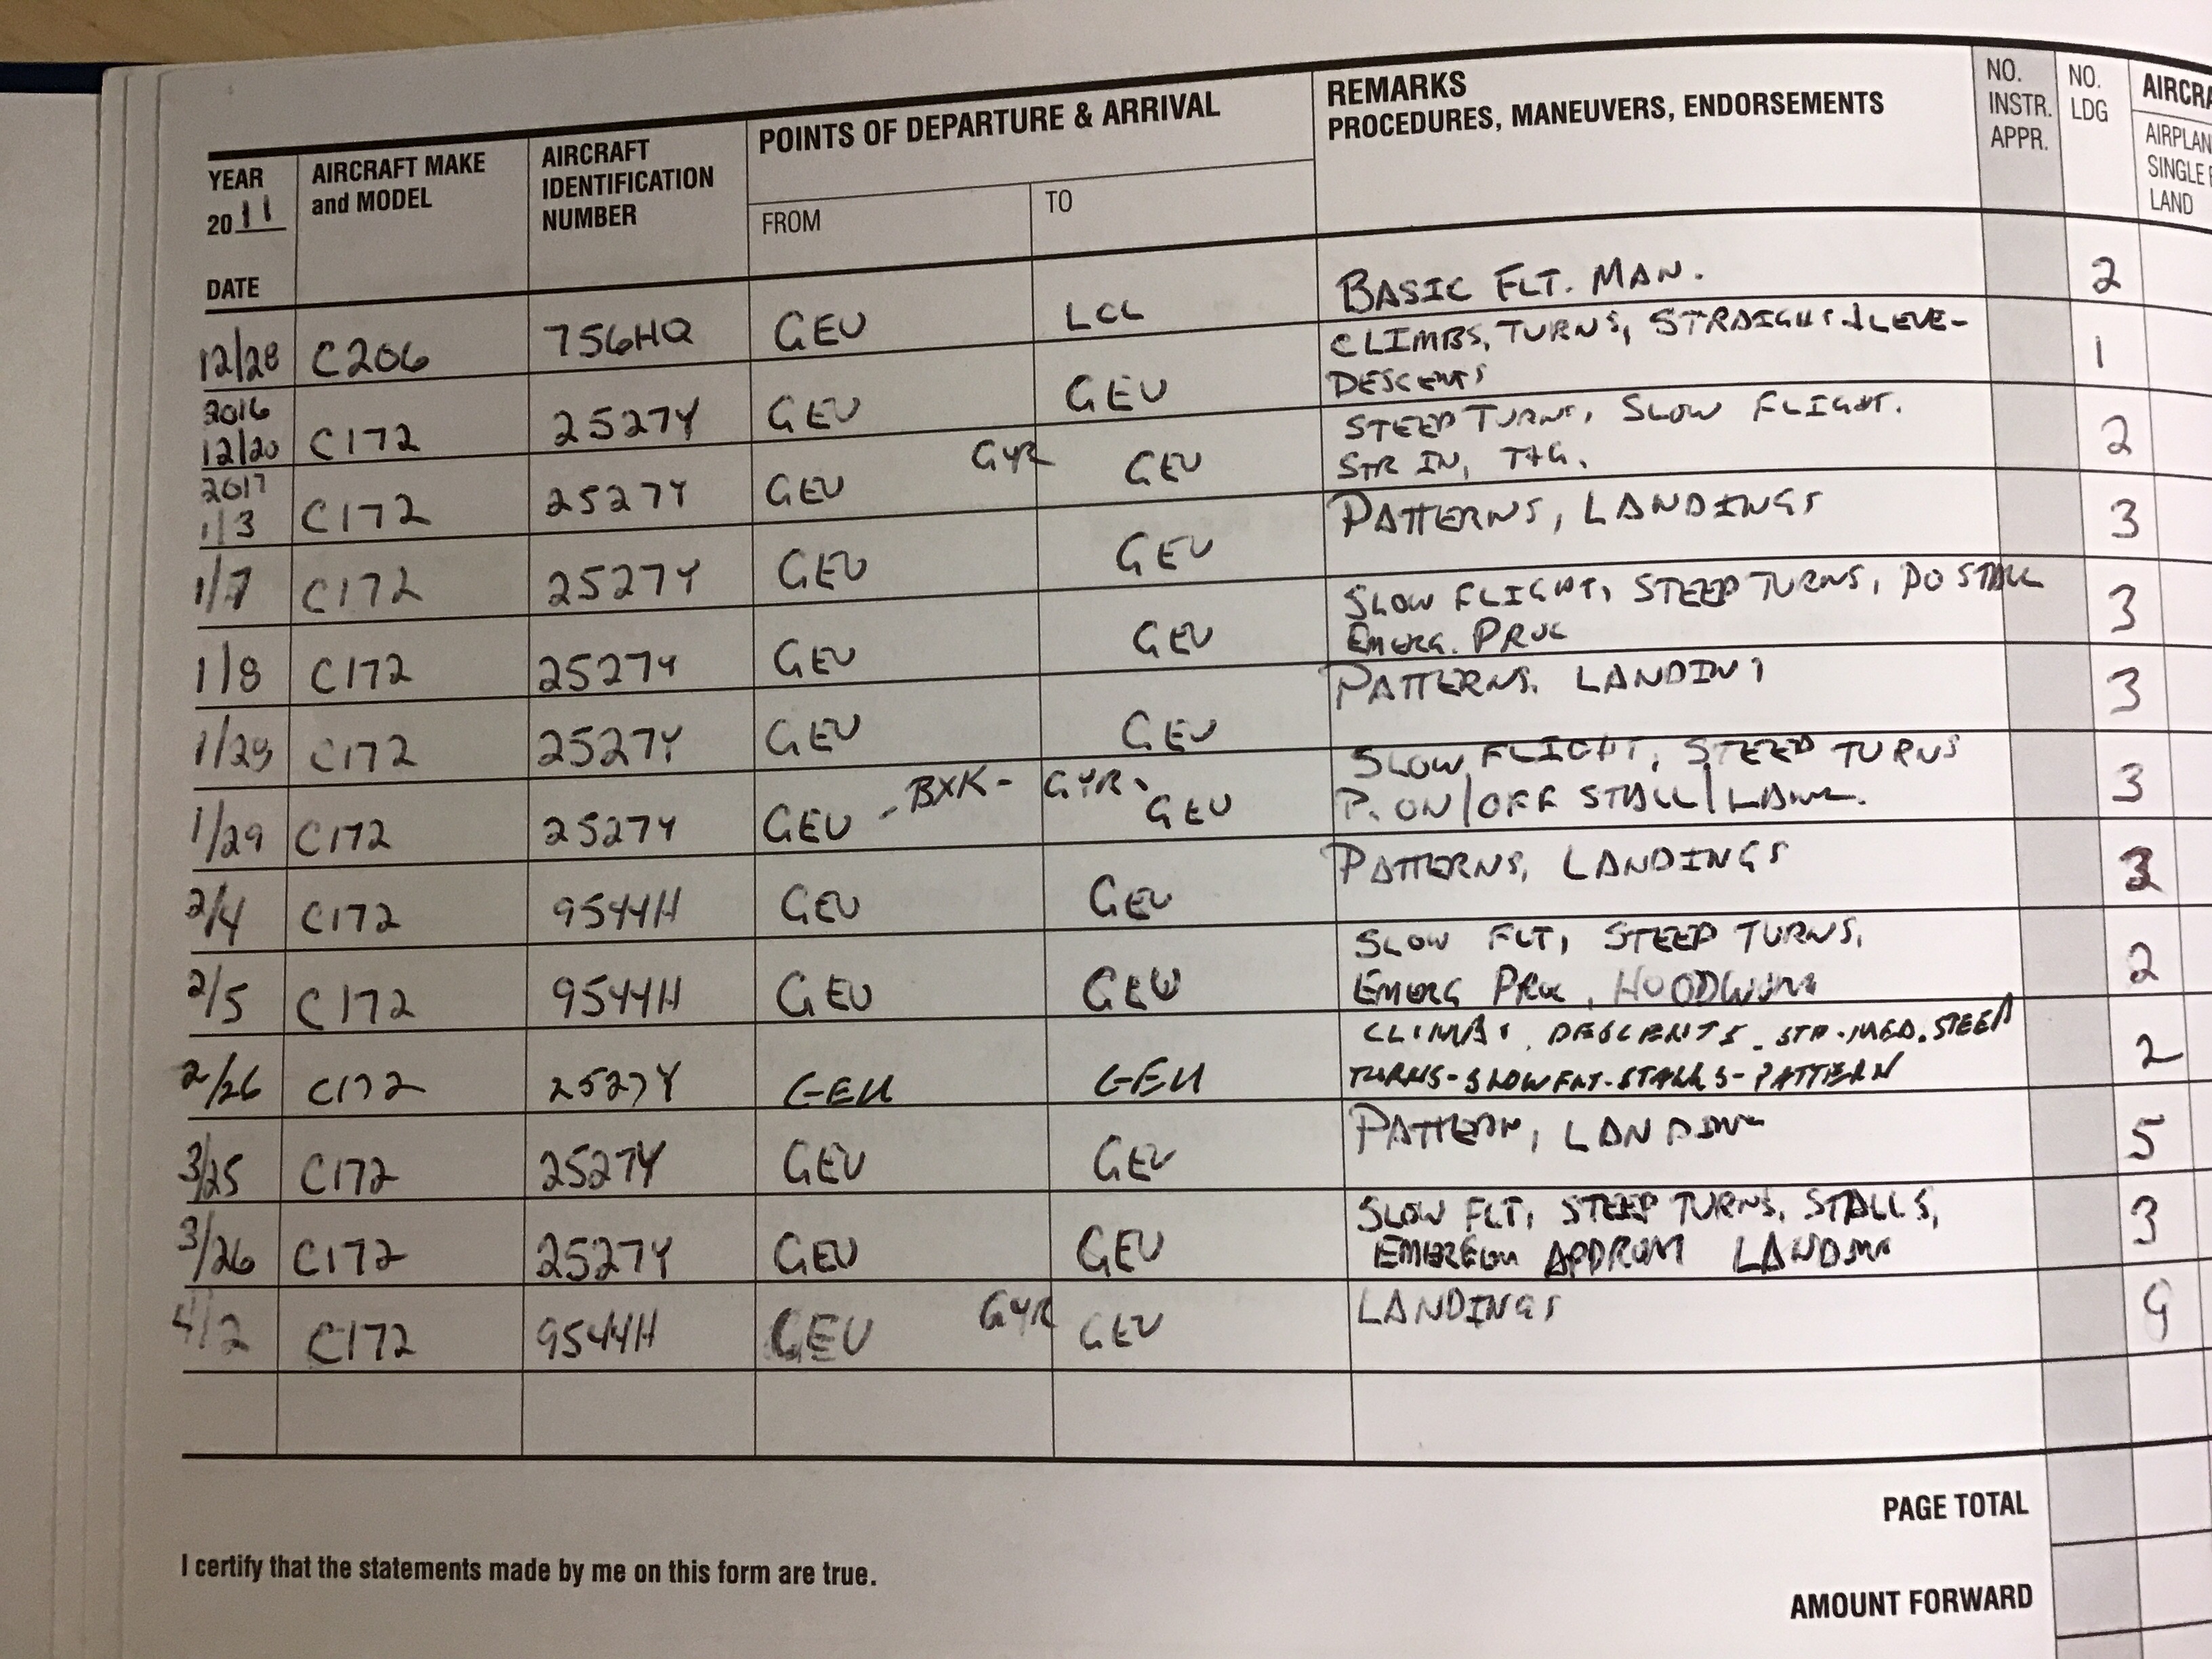 YEAR 20 11
DATE
AIRCRAFT MAKE and MODEL
AIRCRAFT IDENTIFICATION NUMBER
POINTS OF DEPARTURE & ARRIVAL
FROM TO
REMARKS
PROCEDURES, MANEUVERS, ENDORSEMENTS
NO. INSTR. APPR.
NO. LDG
AIRCRA
AIRPLAN
SINGLE
LAND
12/28 C206 756HQ GEU LCL BASIC FLT. MAN. 2
2016 12/20 C172 2527Y GEU GEU CLIMBS, TURNS, STRAIGHT & LEVE-
DESCENTS 1
2017 1/3 C172 2527Y GEU GYR GEU STEEP TURNS, SLOW FLIGHT.
STR IN, T+G. 2
1/7 C172 2527Y GEU GEU PATTERNS, LANDINGS 3
1/8 C172 2527Y GEU GEU SLOW FLIGHT, STEEP TURNS, PO STALL
EMERG. PROC 3
C172 2527Y GEU GEU PATTERNS, LANDIN 3
1/29 C172 2527Y GEU - BXK - GYR - GEU SLOW FLIGHT, STEEP TURNS
P. ON/OFF STALL/ 3
2/4 C172 9544H GEU GEU PATTERNS, LANDINGS 3
2/5 C172 9544H GEU GEU SLOW FLT, STEEP TURNS,
EMERG PROC, 2
2/26 C172 2527Y GEU GEU CLIMBS, DESCENTS - STR - MED. STEEP
TURNS - SLOW FLT - STALLS - PATTERN 2
3/25 C172 2527Y GEU GEU PATTERN, 5
3/26 C172 2527Y GEU GEU SLOW FLT, STEEP TURNS, STALLS, 3
4/2 C172 9544H GEU GYR GEU LANDINGS 9
PAGE TOTAL
I certify that the statements made by me on this form are true.
AMOUNT FORWARD